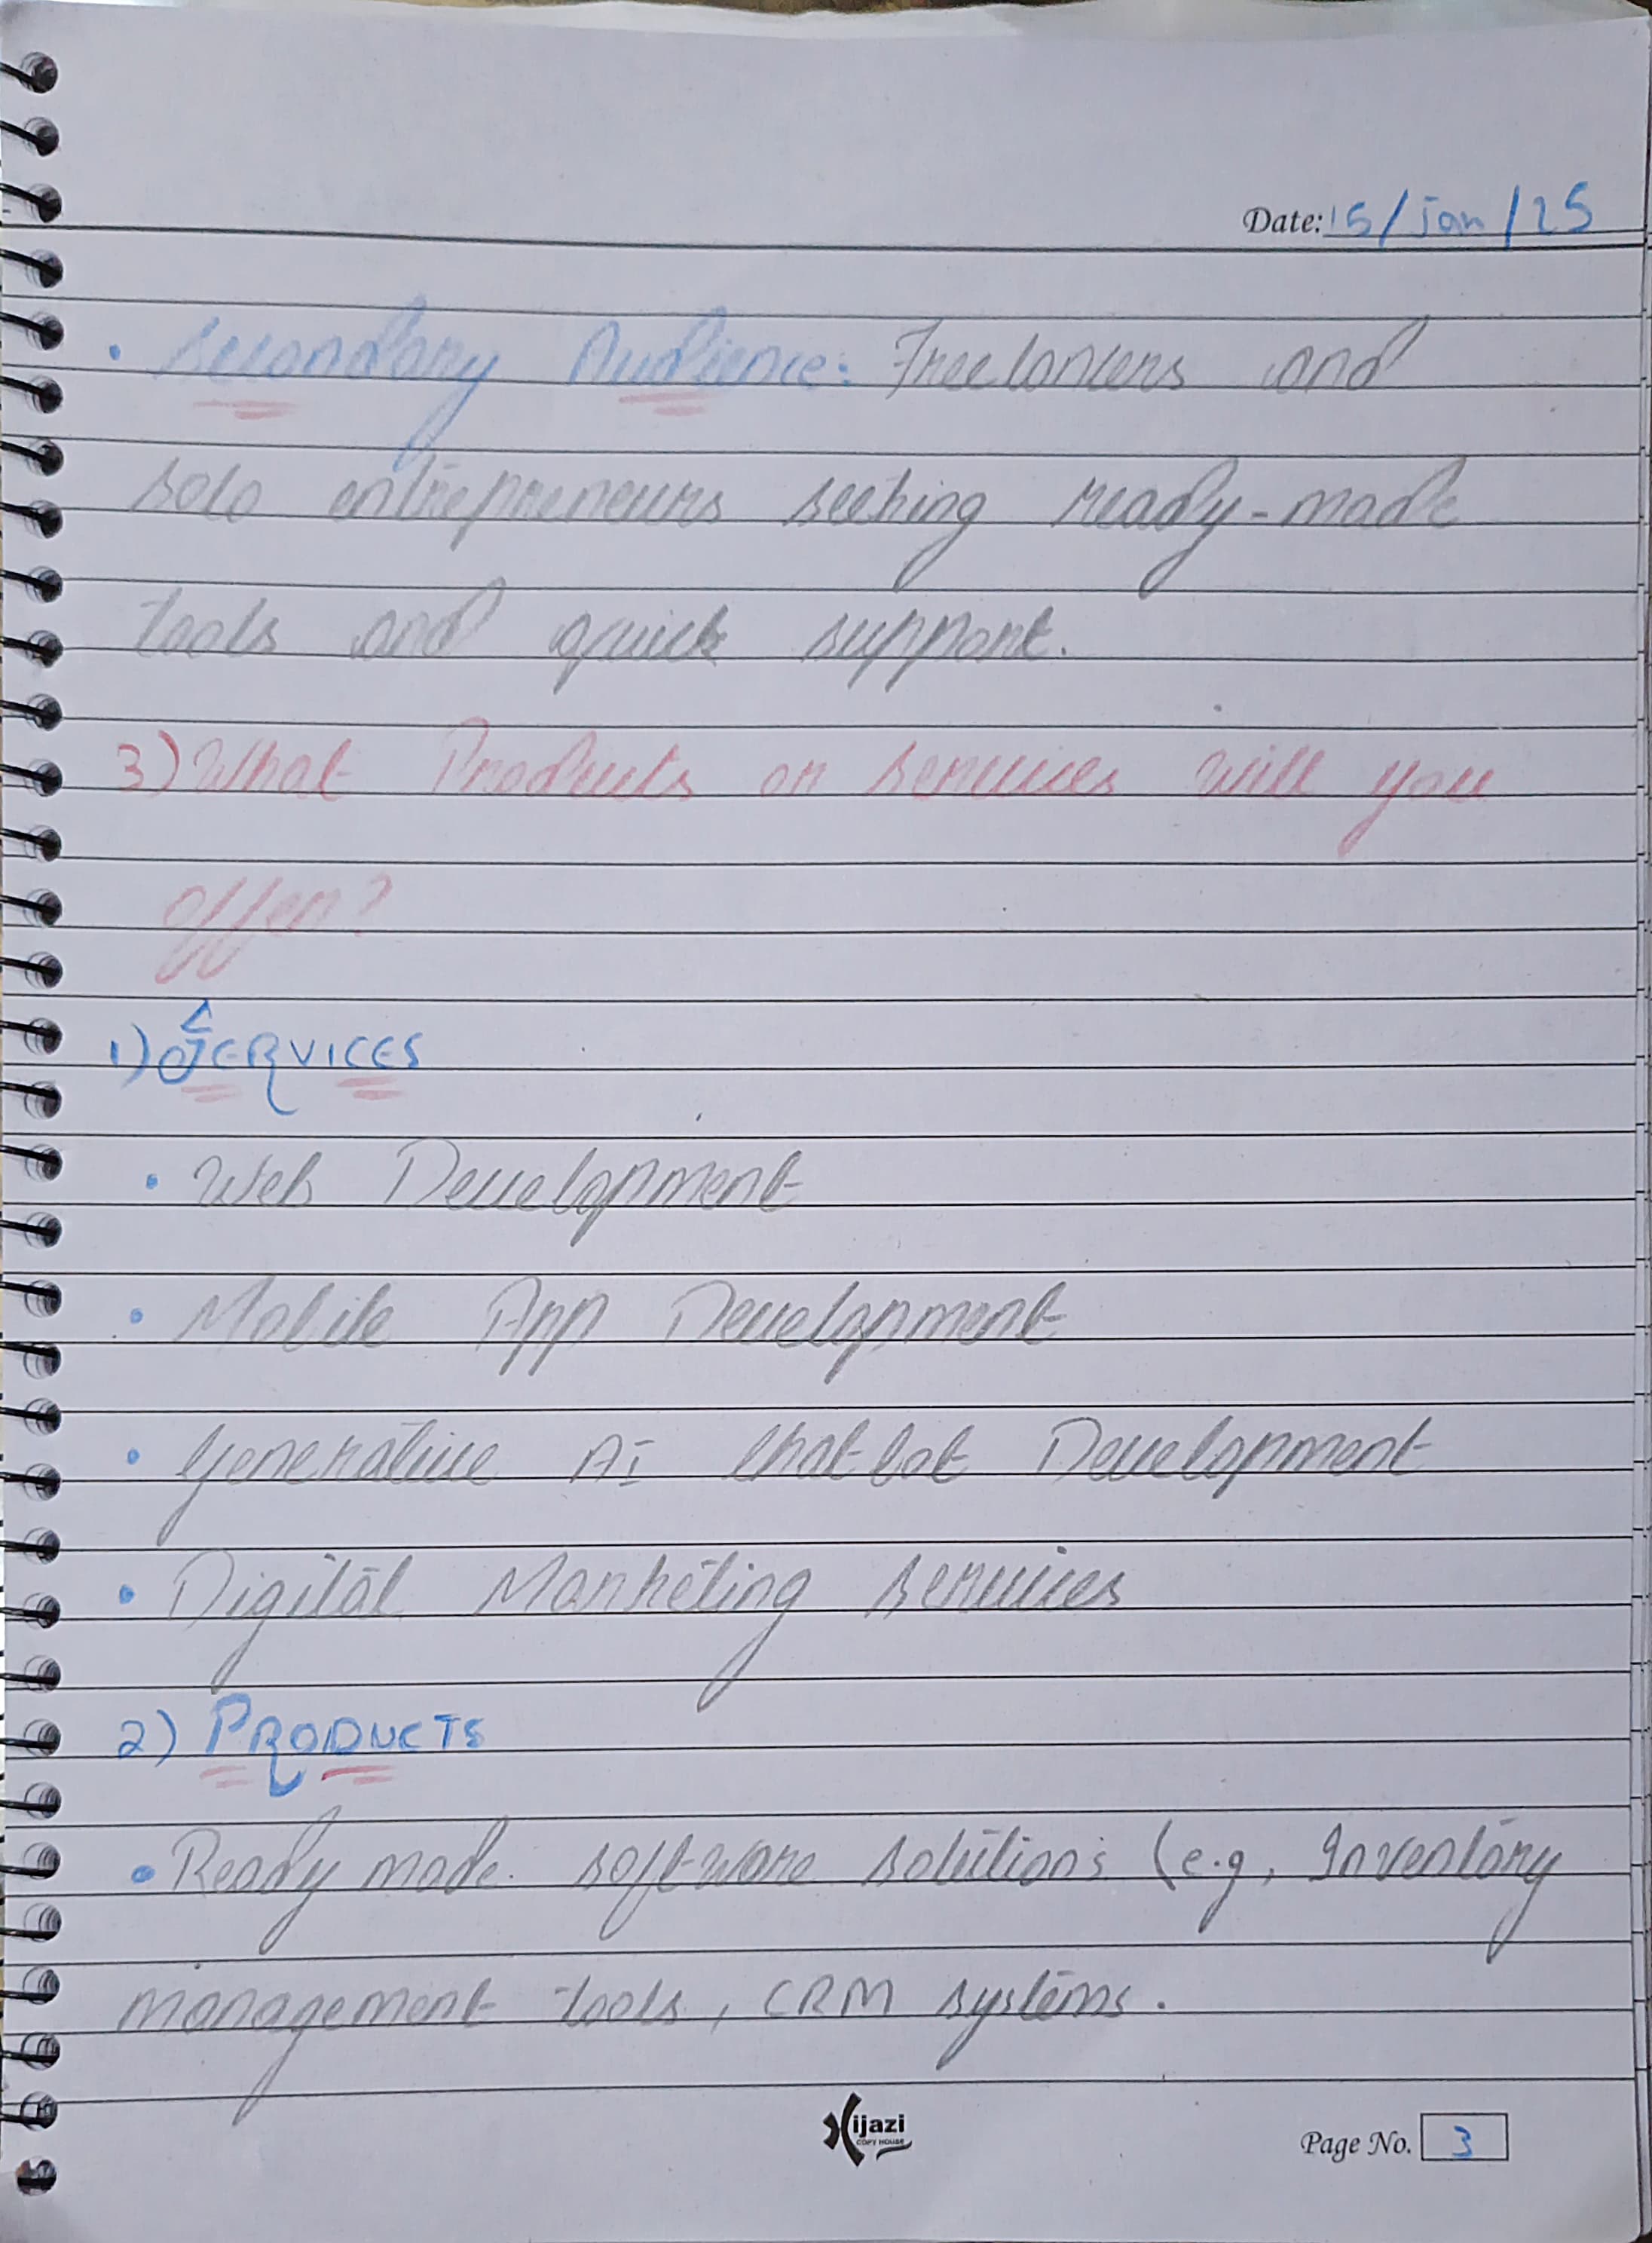 Date: 15/Jan/25
• Secondary Audience: Freelancers and
solo entrepreneurs seeking ready-made
tools and quick support.
3) What Products or services will you
offer?
1) SERVICES
• Web Development
• Mobile App Development
• Generative AI Chatbot Development
• Digital Marketing services
2) PRODUCTS
• Ready made software solutions (e.g, Inventory
management tools, CRM systems.
Hijazi
COPY HOUSE
Page No. 3